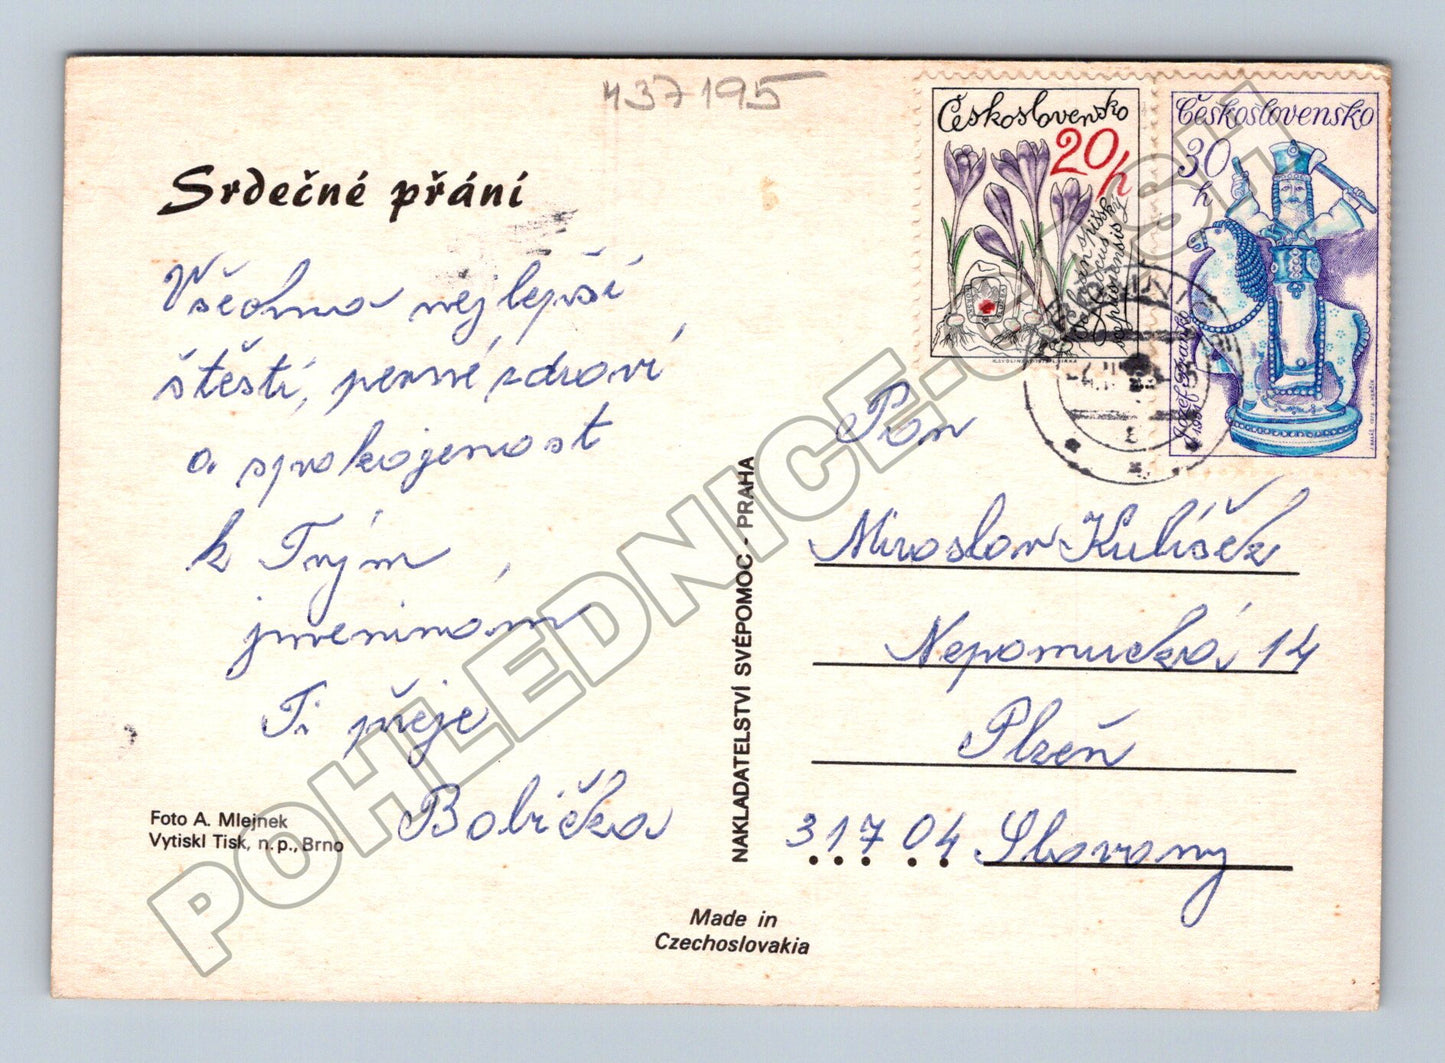 437195
Srdečné přání
Všechno nejlepší
štěstí, pevné zdraví
a spokojenost
k Tvým
jmeninám
Ti přeje
Babička
Foto A. Mlejnek
Vytiskl Tisk, n.p., Brno
NAKLADATELSTVÍ SVÉPOMOC - PRAHA
Made in
Czechoslovakia
Československo
20h
Československo
30
h
Pan
Miroslav Kulíšek
Nepomucká 14
Plzeň
317 04 Slovany
POHLEDNICE.